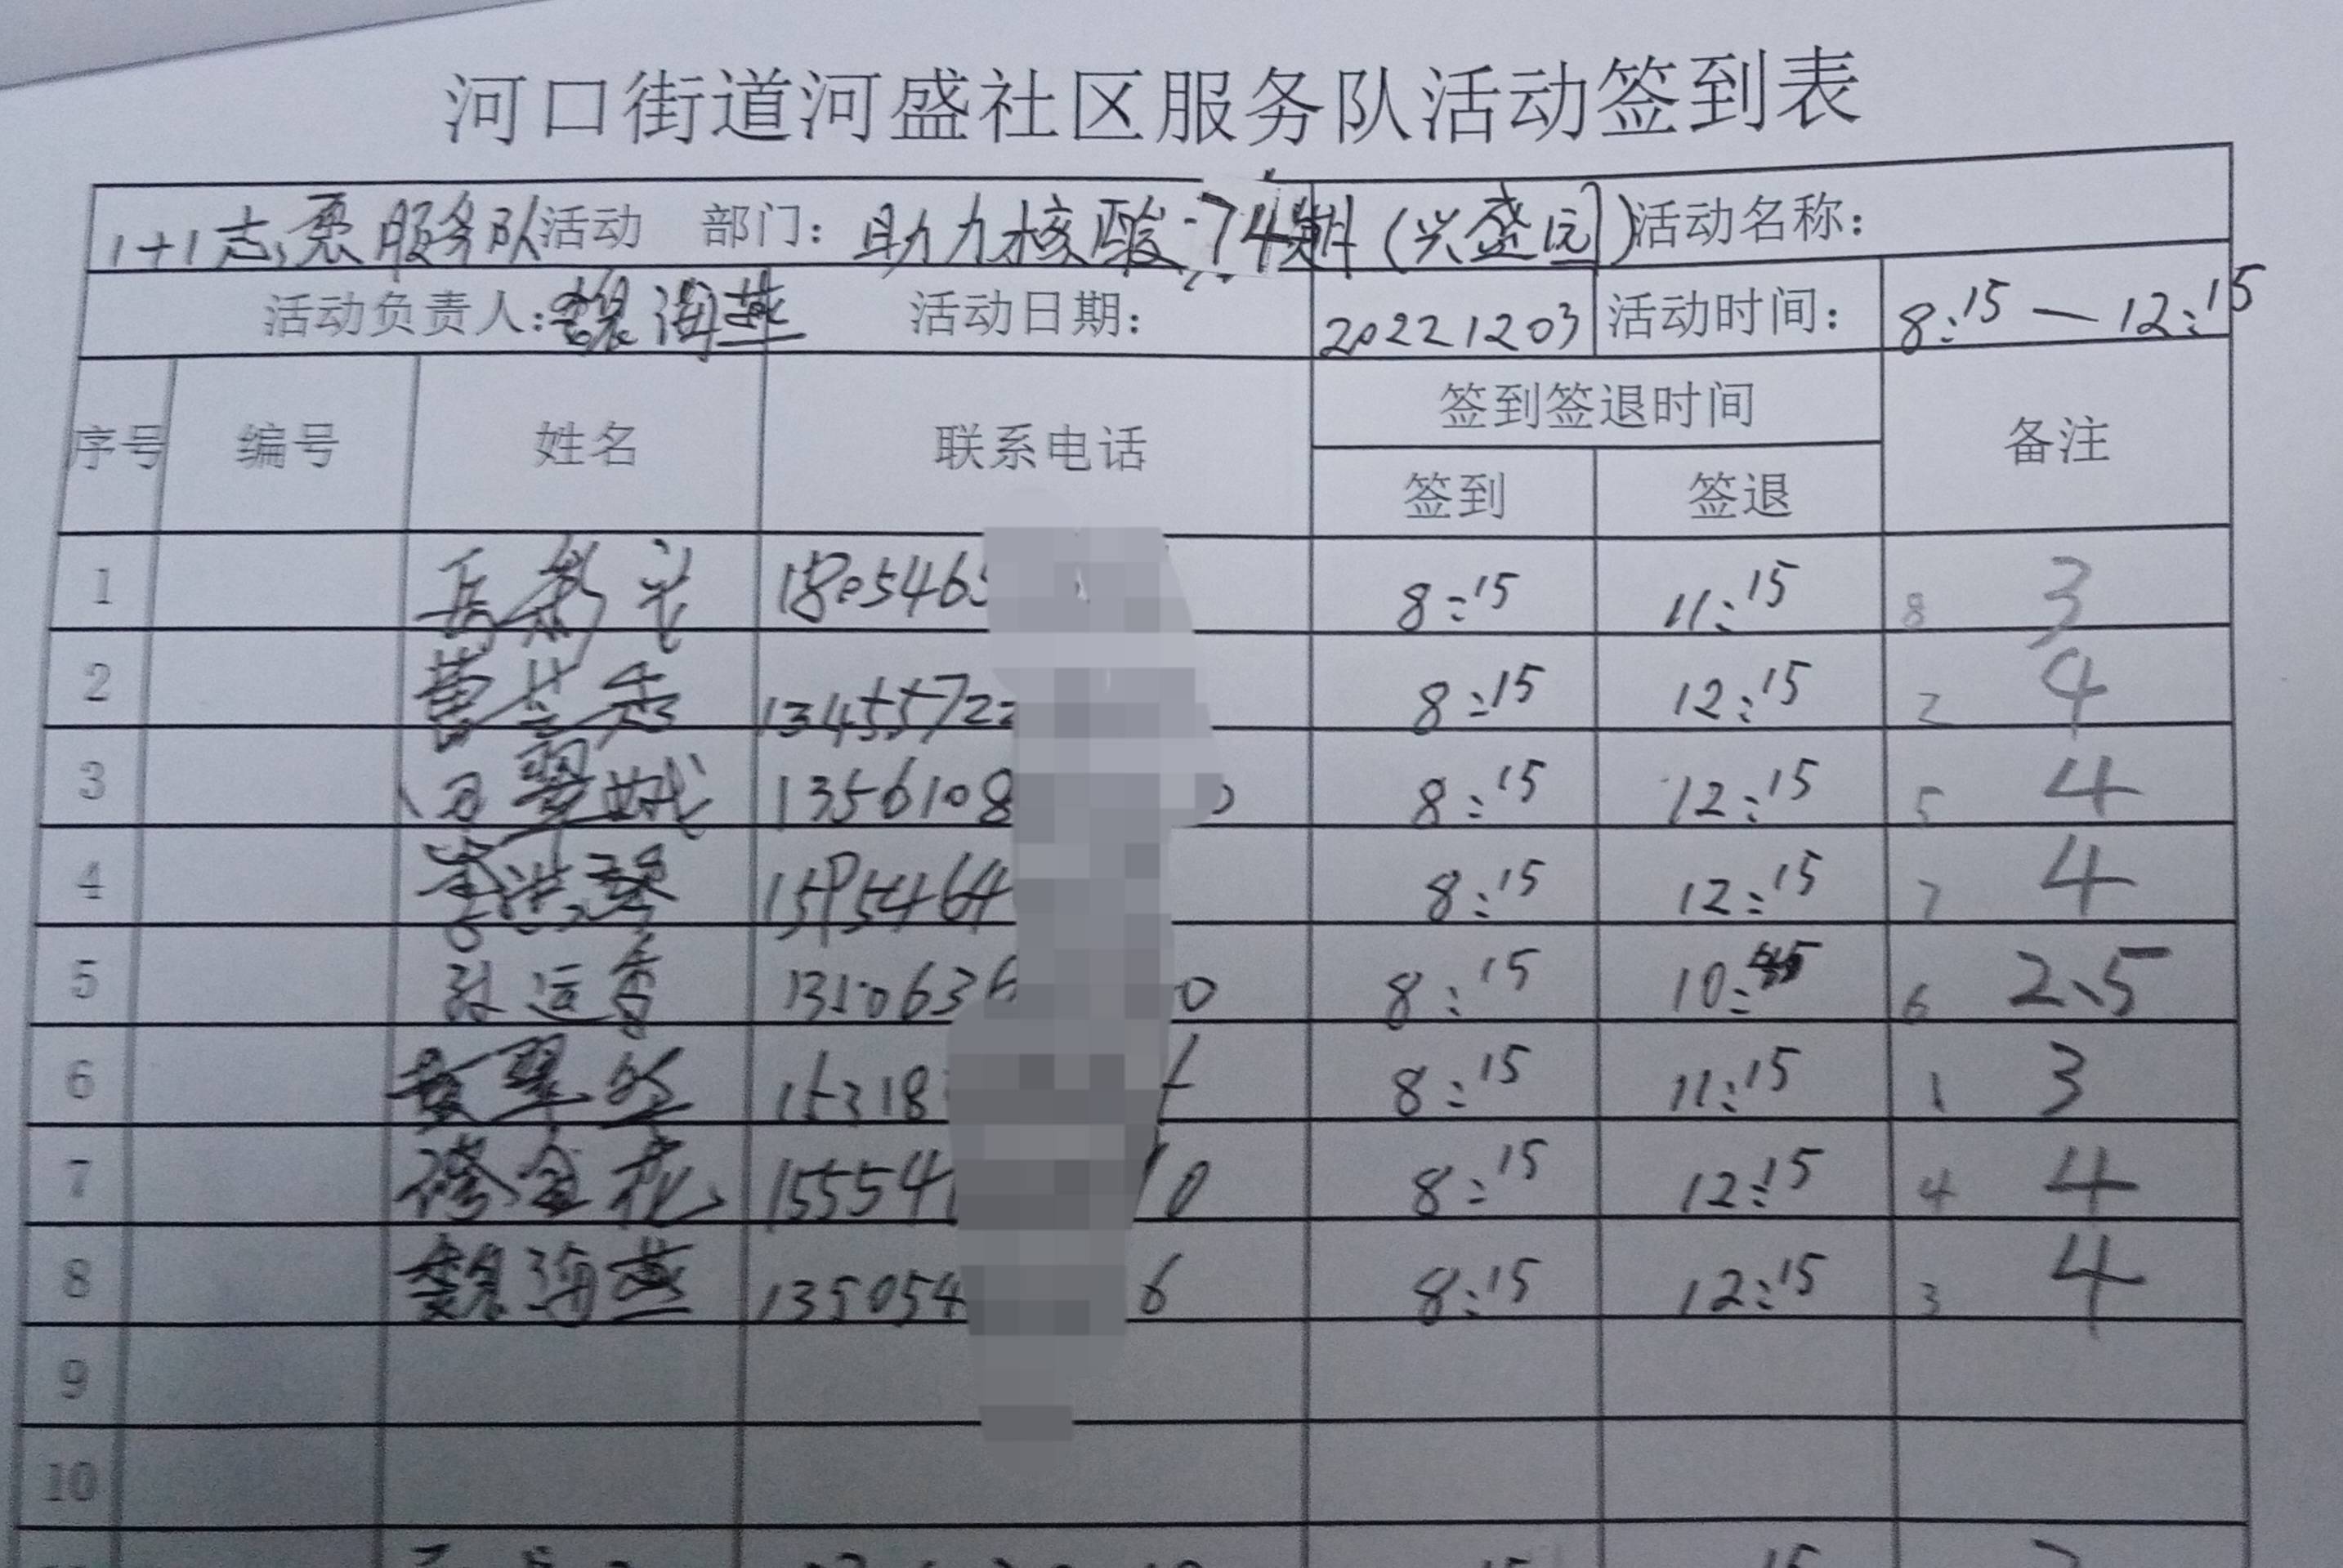 河口街道河盛社区服务队活动签到表
1+1志愿服务队活动 部门：助力核酸74期（兴盛园）活动名称：
活动负责人：魏海燕 活动日期： 20221203 活动时间： 8:15—12:15
序号 编号 姓名 联系电话 签到签退时间 备注
签到 签退
1 1805463 8:15 11:15 8 3
2 13455722 8:15 12:15 2 4
3 1356108 8:15 12:15 5 4
4 1595464 8:15 12:15 7 4
5 1310636 0 8:15 10:45 6 2.5
6 15318 8:15 11:15 1 3
7 穆金花 15554 10 8:15 12:15 4 4
8 魏海燕 135054 6 8:15 12:15 3 4
9
10